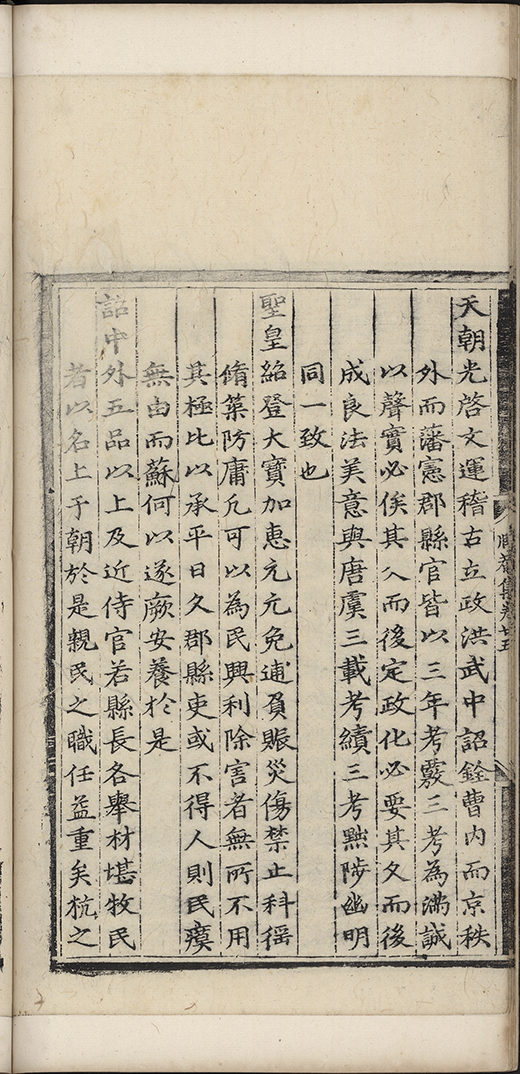 天朝光啓文運稽古立政洪武中詔銓曹内而京秩
外而藩憲郡縣官皆以三年考覈三考為滿誠
以聲實必俟其久而後定政化必要其久而後
成良法美意與唐虞三載考績三考黜陟幽明
同一致也
聖皇紹登大寶加惠元元免逋負賑災傷禁止科徭
脩築防庸凡可以為民興利除害者無所不用
其極比以承平日久郡縣吏或不得人則民瘼
無由而蘇何以遂厥安養於是
詔中外五品以上及近侍官若縣長各舉材堪牧民
者以名上于朝於是親民之職任益重矣杭之
集卷廿五